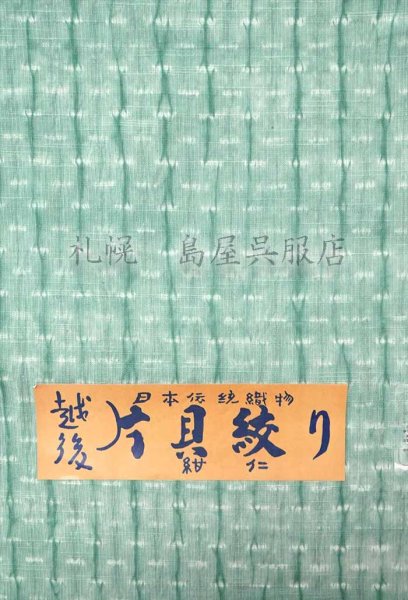 札幌　島屋呉服店
日本伝統織物
越後
片貝絞り
紺仁